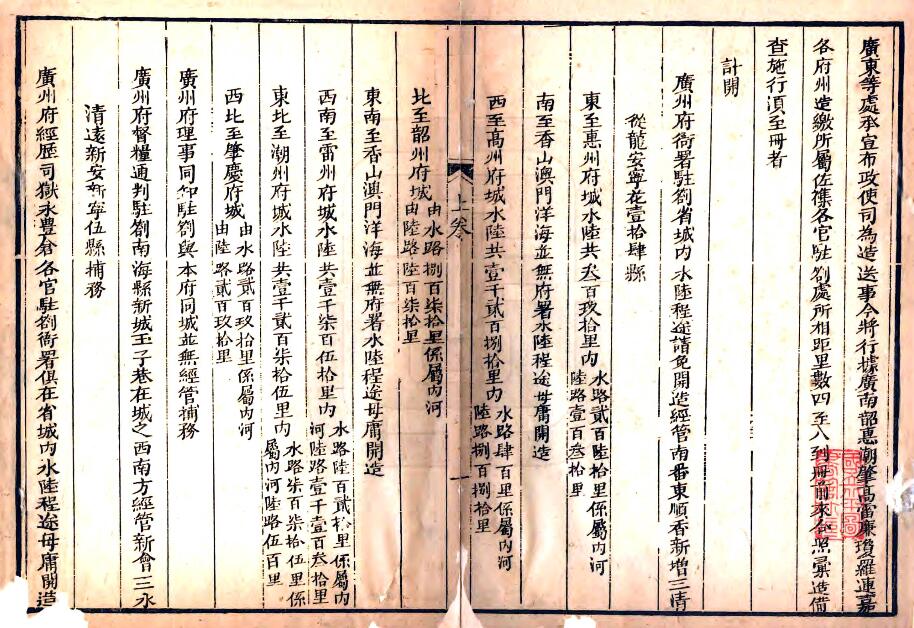 廣東等處承宣布政使司為造送事今將行據廣南韶惠潮肇高雷廉瓊羅連嘉
各府州造繳所屬佐雜各官駐劄處所相距里數四至八到冊前來合照彙造備
查施行須至冊者
計開
廣州府衙署駐劄省城內水陸程途請免開造經管南番東順香新增三清
從龍安寧花壹拾肆縣
東至惠州府城水陸共叁百玖拾里內水路貳百陸拾里係屬內河
陸路壹百叁拾里
南至香山澳門洋海並無府署水陸程途毋庸開造
西至高州府城水陸共壹千貳百捌拾里內水路肆百里係屬內河
陸路捌百捌拾里
上叅
一
北至韶州府城由水路捌百柒拾里係屬內河
由陸路陸百柒拾里
東南至香山澳門洋海並無府署水陸程途毋庸開造
西南至雷州府城水陸共壹千柒百伍拾里內水路陸百貳拾里係屬內
河陸路壹千壹百叁拾里
東北至潮州府城水陸共壹千貳百柒拾伍里內水路柒百柒拾伍里係
屬內河陸路伍百里
西北至肇慶府城由水路貳百玖拾里係屬內河
由陸路貳百玖拾里
廣州府理事同知駐劄與本府同城並無經管捕務
廣州府督糧通判駐劄南海縣新城玉子巷在城之西南方經管新會三水
清遠新安新寧伍縣捕務
廣州府經歷司獄永豐倉各官駐劄衙署俱在省城內水陸程途毋庸開造